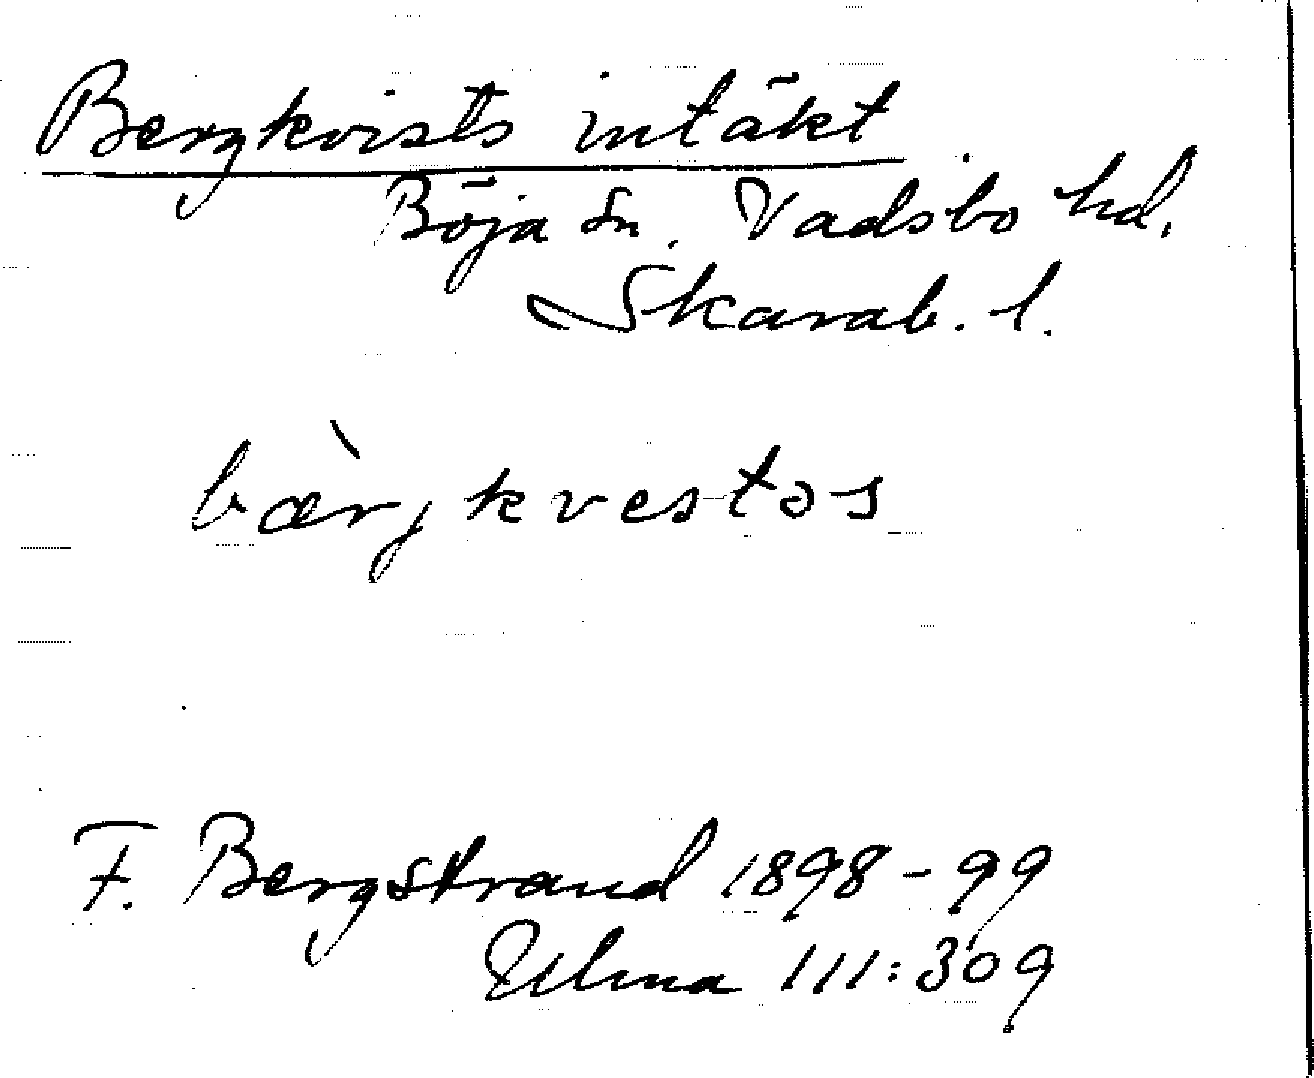 Bergkvists intäkt
Böja sn. Vadsbo hd.
Skarab. l.
bær̀jkvestəs
F. Bergstrand 1898-99
Ulma 111:309